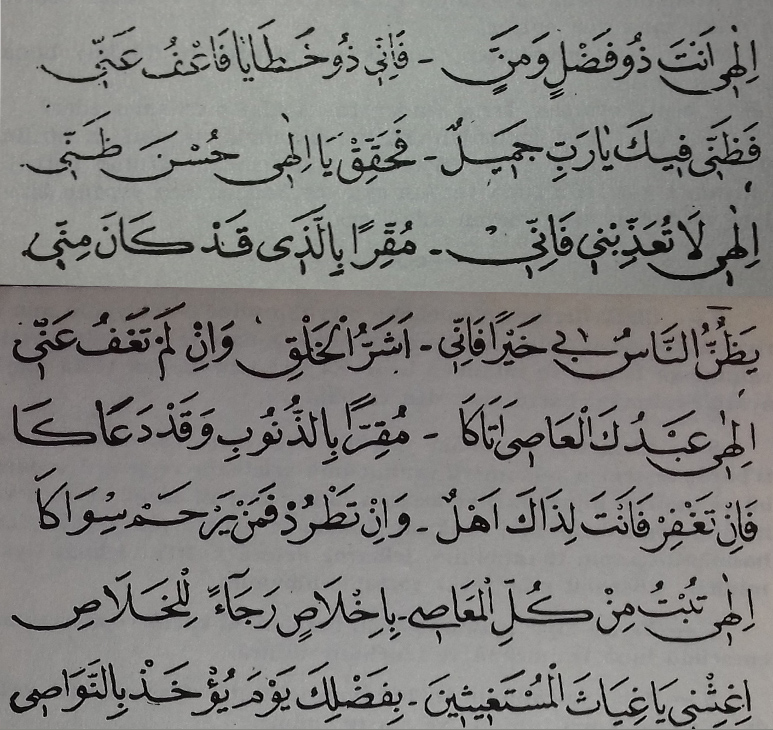 اِلٰهِى اَنْتَ ذُوفَضْلٍ وَمَنٍّ - فَاِنِّى ذُوخَطَايَا فَاعْفُ عَنِّى
فَظَنِّى فِيكَ يَارَبِّ جَمِيلٌ - فَحَقِّقْ يَا اِلٰهِى حُسْنَ ظَنِّى
اِلٰهِى لَا تُعَذِّبْنِى فَاِنِّى - مُقِرًا بِالَّذِى قَدْ كَانَ مِنِّى
يَظُنُّ النَّاسُ بِى خَيْرًا فَاِنِّى - اَشَرُّ الْخَلْقِ وَاِنْ لَمْ تَعْفُ عَنِّى
اِلٰهِى عَبْدُكَ الْعَاصِى اَتَاكَا - مُقِرًّا بِالذُّنُوبِ وَقَدْ دَعَاكَا
فَاِنْ تَغْفِرْ فَاَنْتَ لِذَاكَ اَهْلٌ - وَاِنْ تَطْرُدْ فَمَنْ يَرْحَمْ سِوَاكَا
اِلٰهِى تُبْتُ مِنْ كُلِّ الْمَعَاصِى - بِاِخْلَاصٍ رَجَاءً لِلْخَلَاصِ
اِغِثْنِى يَا غِيَاثَ الْمُسْتَغِيثِينَ - بِفَضْلِكَ يَوْمَ يُؤْخَذُ بِالنَّوَاصِى